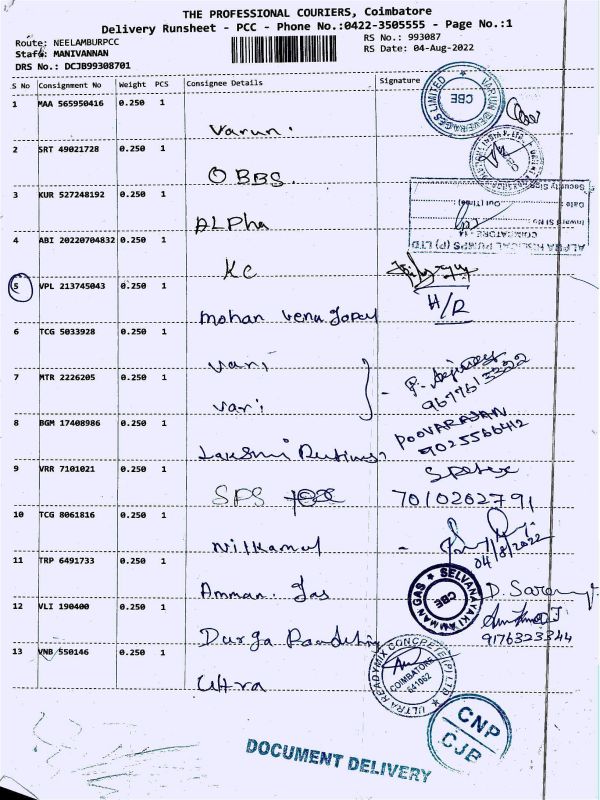 THE PROFESSIONAL COURIERS, Coimbatore
Delivery Runsheet - PCC - Phone No.:0422-3505555 - Page No.:1
Route: NEELAMBURPCC
RS No.: 993087
Staff: MANIVANNAN
RS Date: 04-Aug-2022
DRS No.: DCJB99308701
S No Consignment No Weight PCS Consignee Details Signature
1 MAA 565950416 0.250 1
Varun.
VARUN BEVERAGES LIMITED
CBE
2 SRT 49021728 0.250 1
OBBS.
3 KUR 527248192 0.250 1
ALPha
Security Sign
Date : Out (Time)
Inward Sl No :
COIMBATORE - 14
ALPHA HELICAL PUMPS (P) LTD
4 ABI 20220704832 0.250 1
KC
5 VPL 213745043 0.250 1
H/R
Mohan Venu Gopal
6 TCG 5033928 0.250 1
Vari
7 MTR 2226205 0.250 1
9677613322
Vari
8 BGM 17408986 0.250 1
POOVARAJAN
9025566412
Lakshmi
9 VRR 7101021 0.250 1
SPS
7010202791
10 TCG 8061816 0.250 1
Nilkamal
04/8/2022
11 TRP 6491733 0.250 1
SELVANAYAKI AMMAN GAS
CBE
Amman. Gas
12 VLI 190400 0.250 1
9176323344
Durga
13 VNB 550146 0.250 1
ULTRA READYMIX CONCRETE (P) LTD
COIMBATORE
641062
Ultra
CNP
CJB
DOCUMENT DELIVERY